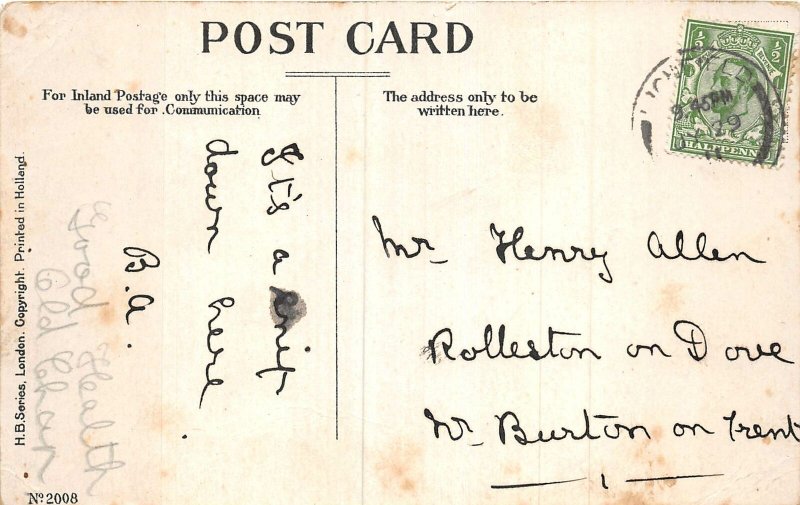 POST CARD
For Inland Postage only this space may
be used for Communication
The address only to be
written here.
½ ½
HALFPENNY
9 45PM
29
11
It's a
down here
B.A.
Good Health
Old Chap
Mr Henry Allen
Rolleston on Dove
Nr. Burton on Trent
H.B. Series, London. Copyright. Printed in Holland.
Nº 2008